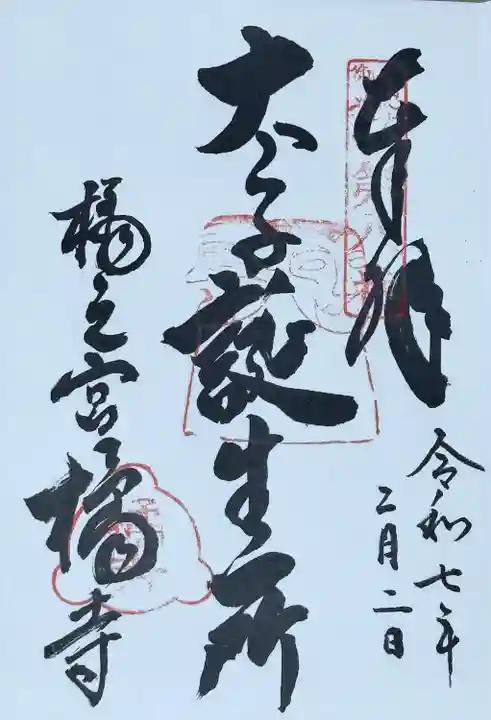 奉拝
令和七年
二月二日
太子誕生所
橘之宮 橘寺